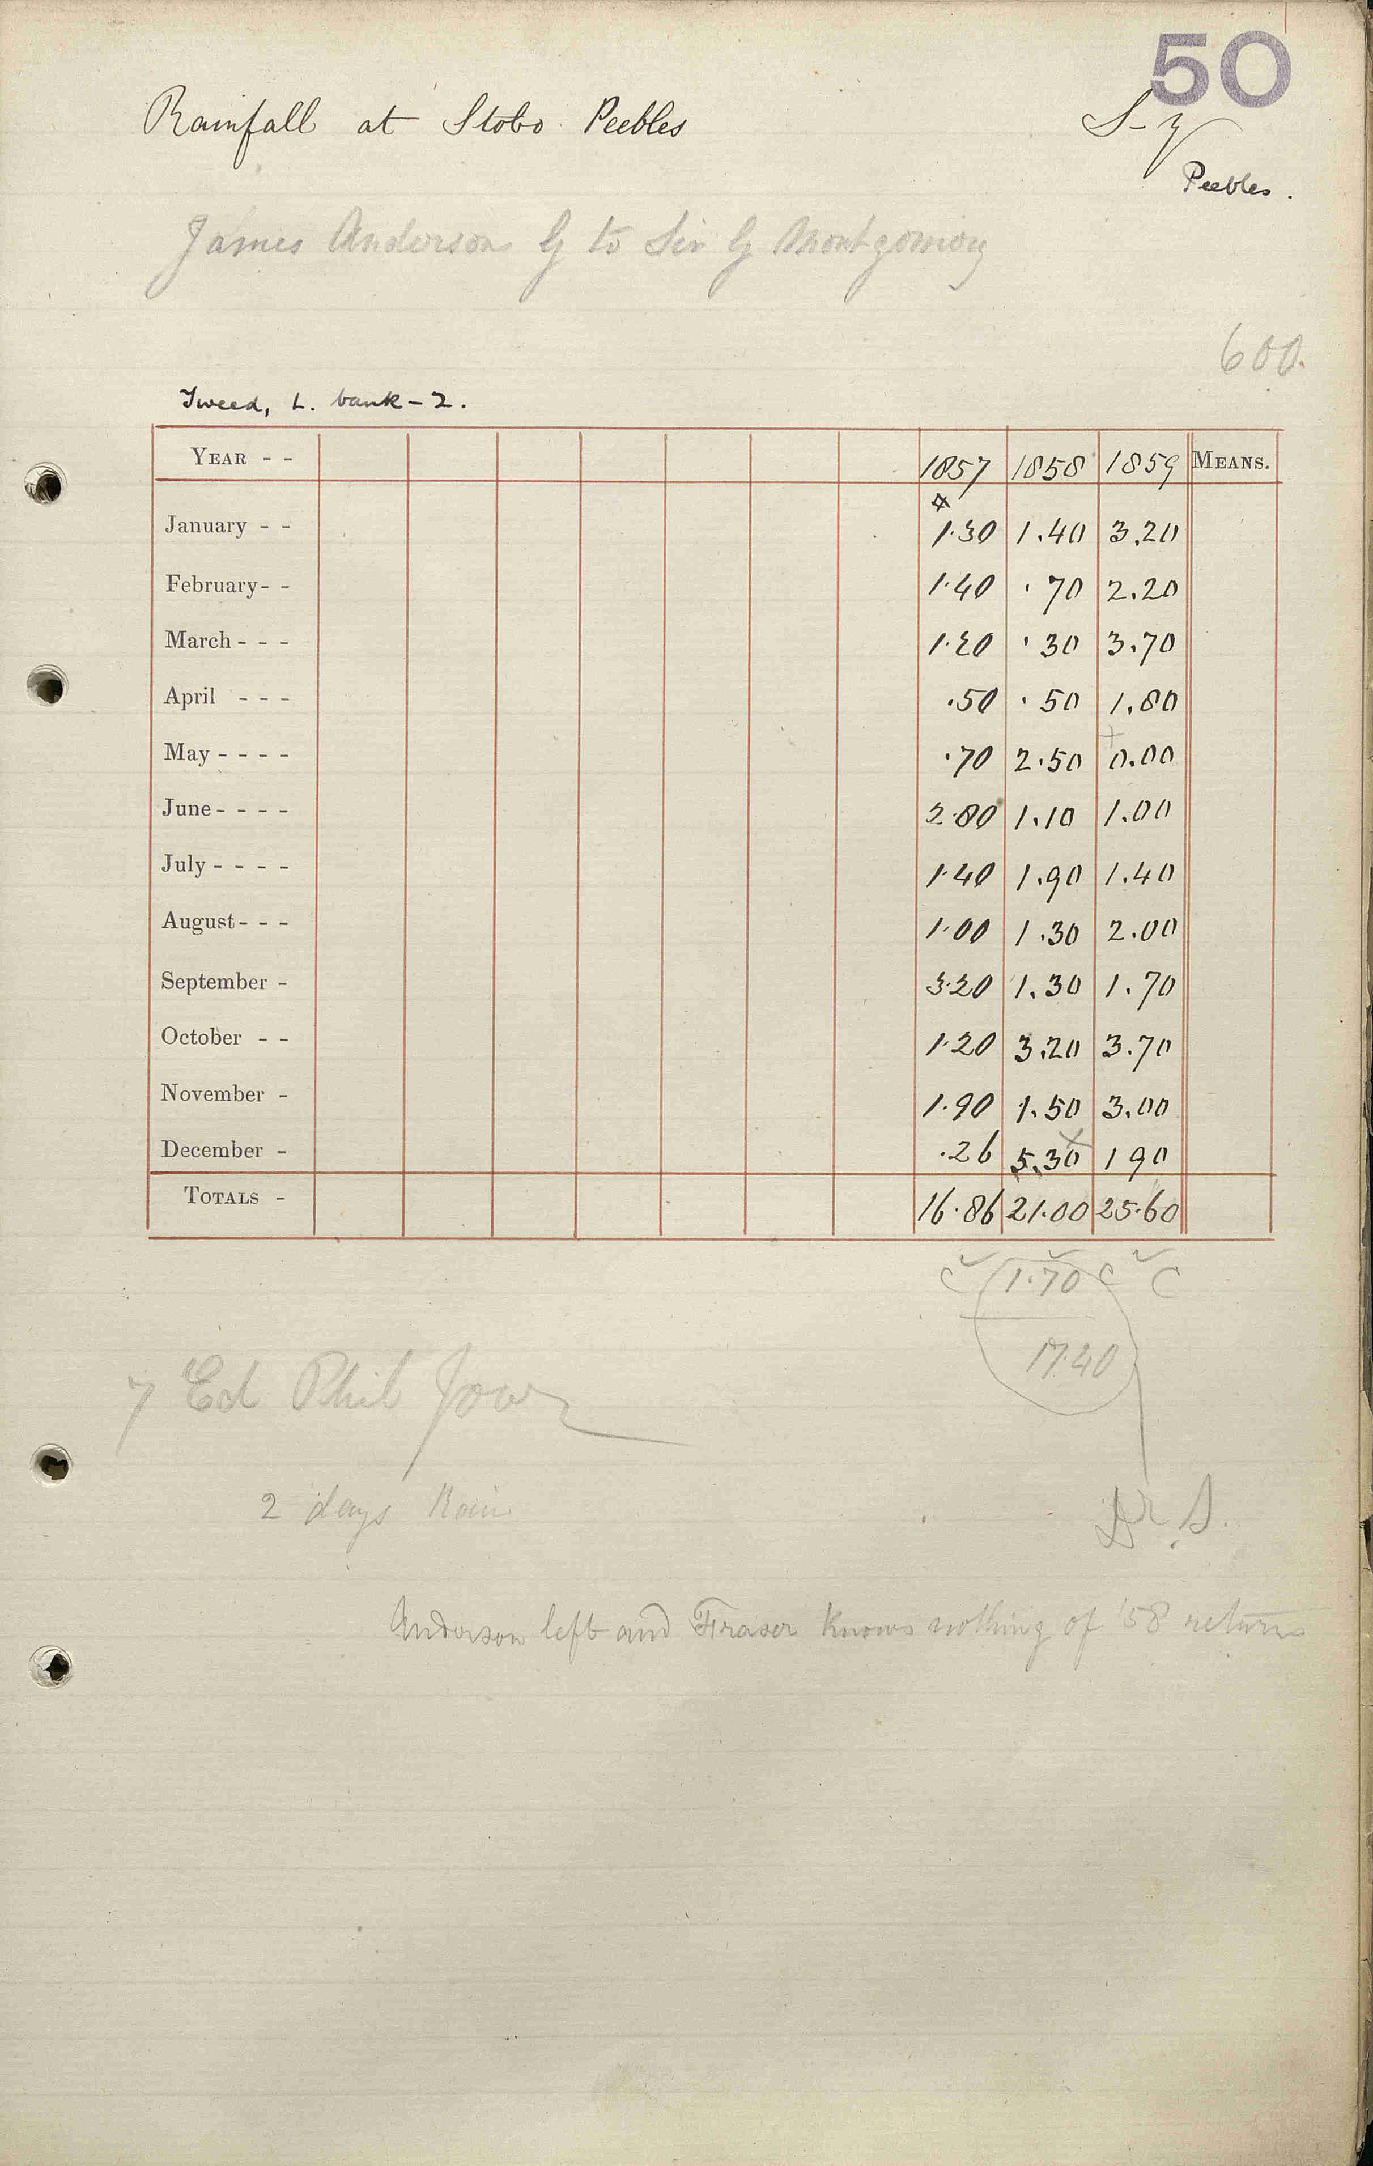 50
Rainfall at Stobo Peebles
Peebles.
James Anderson G to Sir G Montgomery
600.
Tweed, L. bank - 2.
YEAR - - 1857 1858 1859 MEANS.
January - - 1.30 1.40 3.20
February - - 1.40 .70 2.20
March - - - 1.20 .30 3.70
April - - - .50 .50 1.80
May - - - - .70 2.50 0.00
June - - - - 2.80 1.10 1.00
July - - - - 1.40 1.90 1.40
August - - - 1.00 1.30 2.00
September - 3.20 1.30 1.70
October - - 1.20 3.20 3.70
November - 1.90 1.50 3.00
December - .26 5.30 1 90
TOTALS - 16.86 21.00 25.60
C 1.70 C C
17.40
Ed Phil Jour
2 days Rain
Dr S.
Anderson left and Fraser knows nothing of '58 return